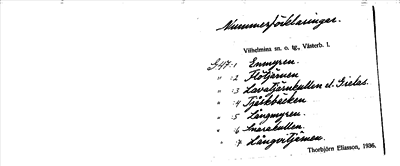 Nummerförklaringar.
Vilhelmina sn. o. tg., Västerb. l.
G47:1 Enmyren.
" :2 Flötjärnen
" :3 Lavatjärnkullen el. Gielas.
" :4 Tjåskbäcken
" :5 Långmyren.
" :6 Snarakullen.
" :7 Långvitjärnen.
Thorbjörn Eliasson, 1936.